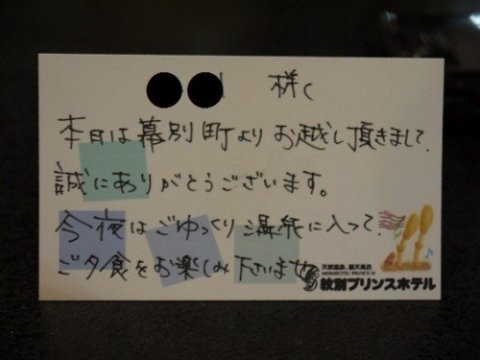 様
本日は幕別町よりお越し頂きまして、
誠にありがとうございます。
今夜はごゆっくり温泉に入って、
ご夕食をお楽しみ下さいませ
天然温泉、露天風呂
MOMBETSU PRINCE H
紋別プリンスホテル